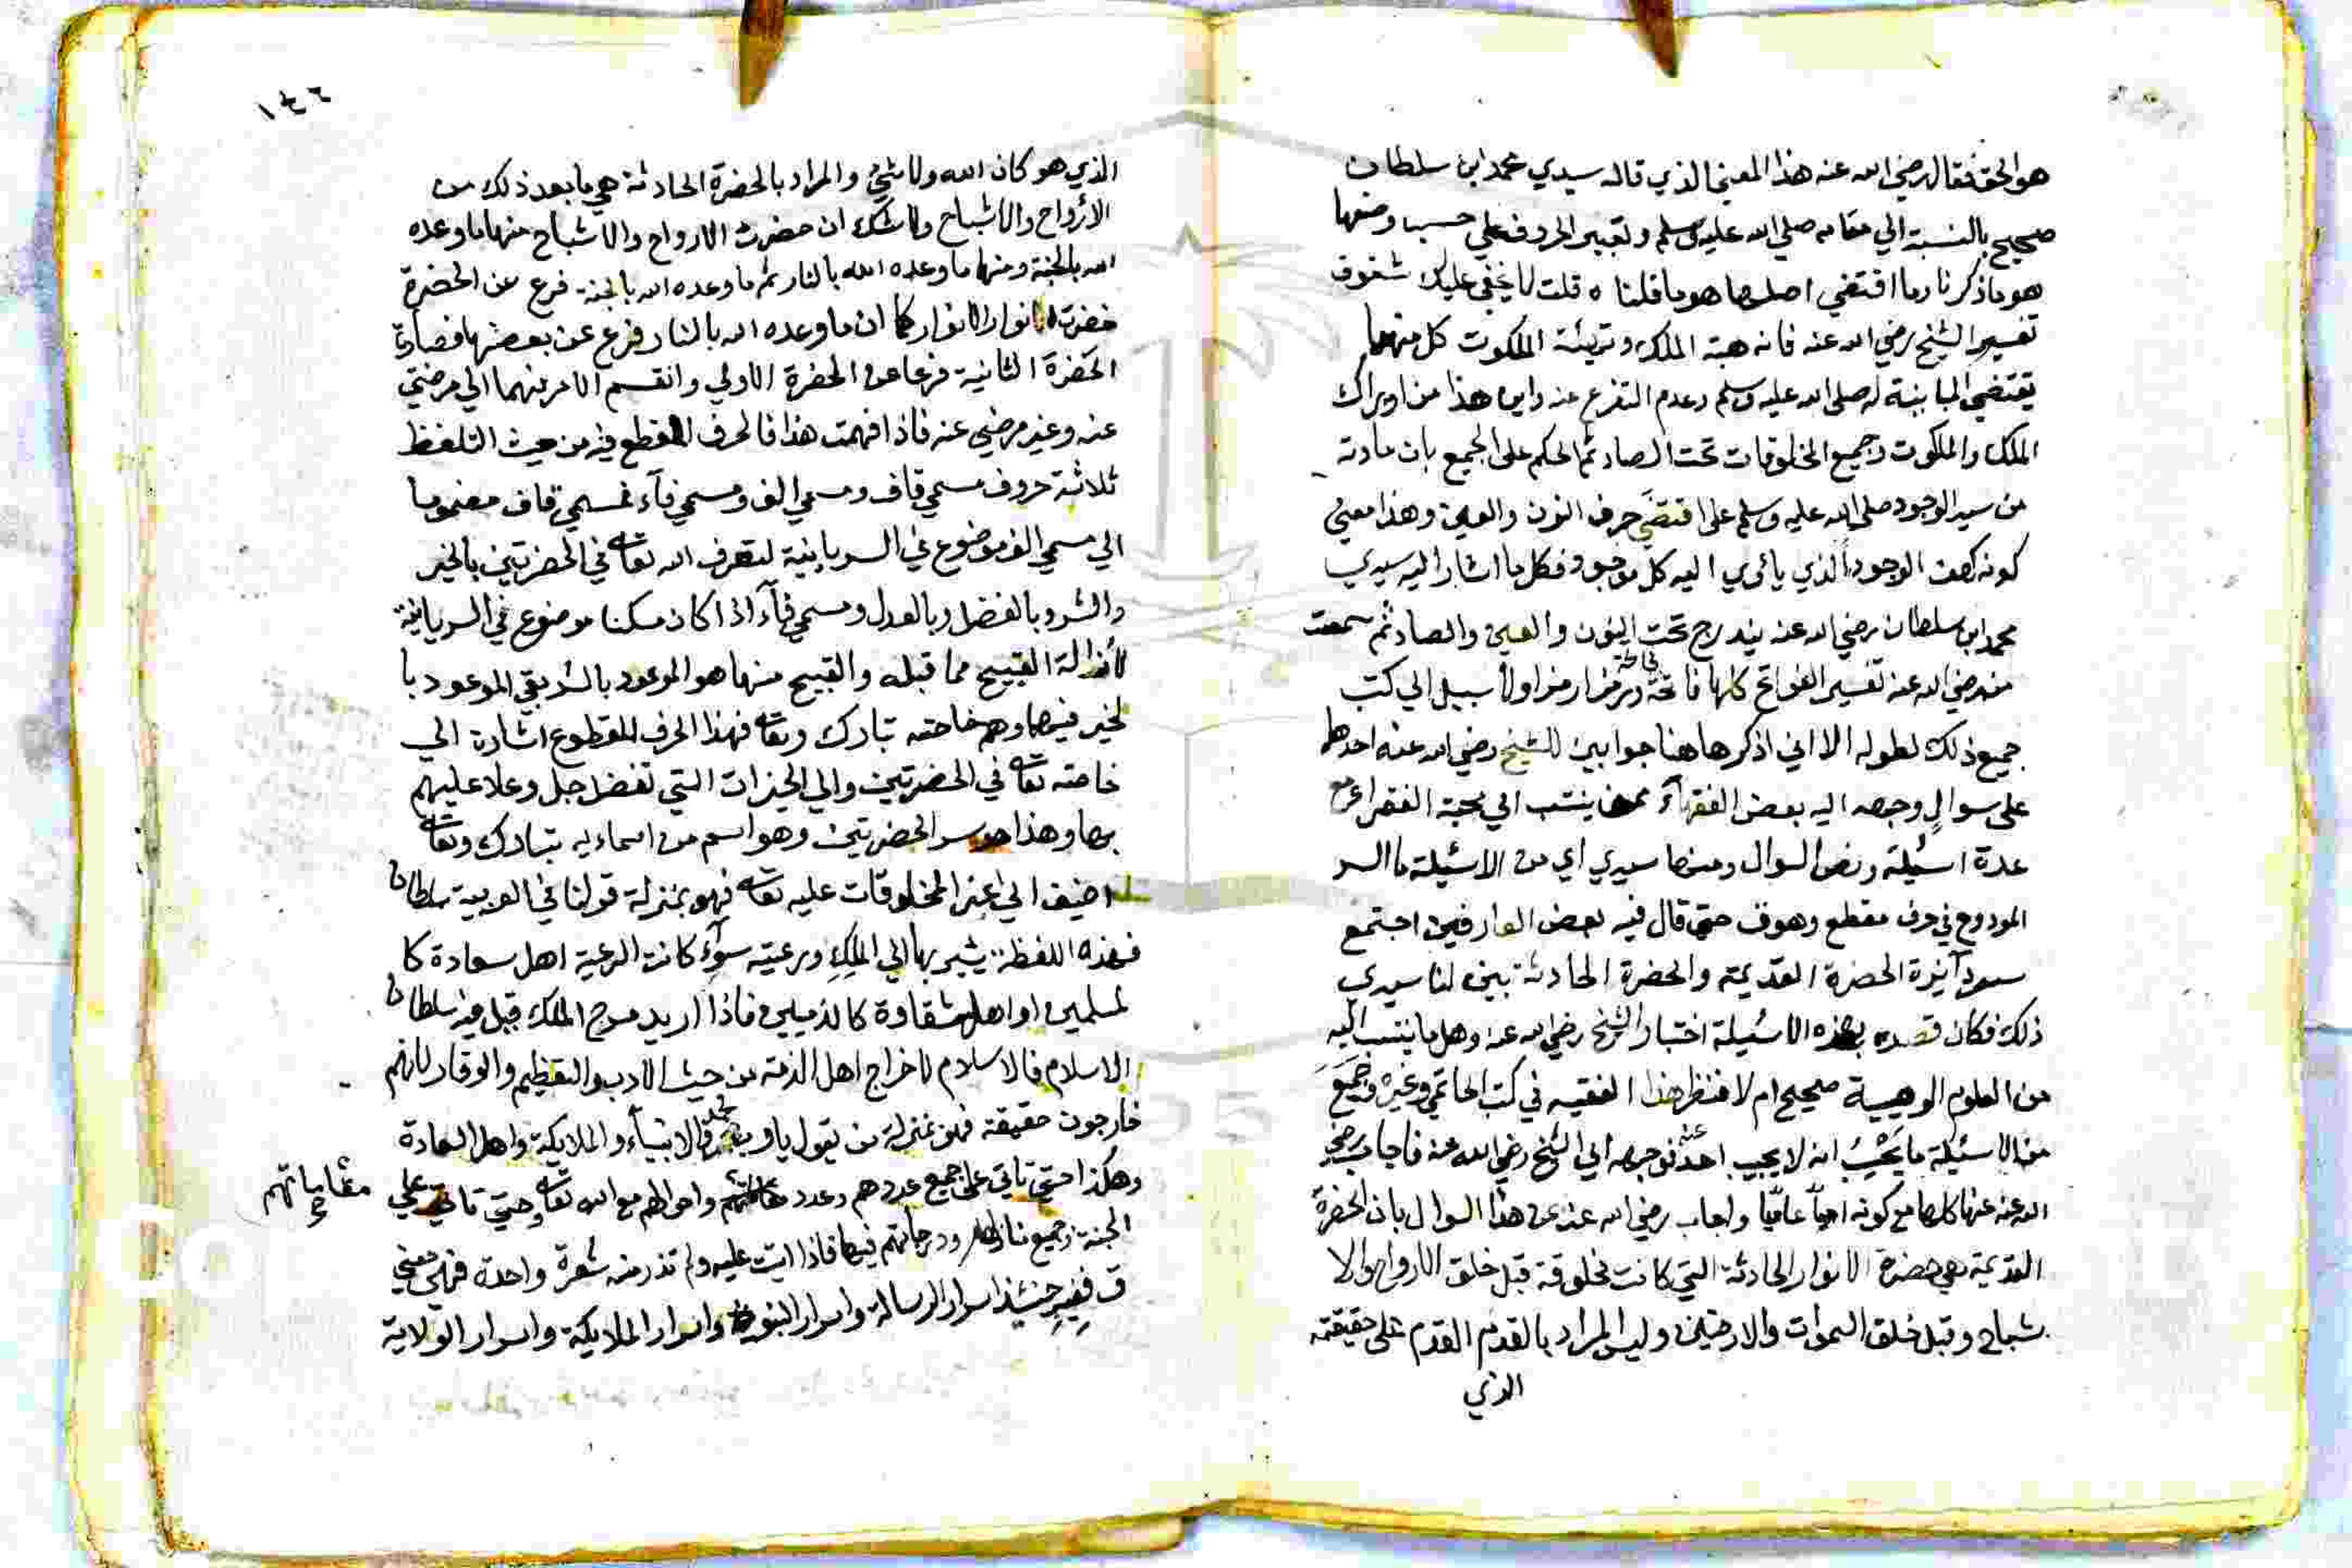 هو الحق فقال رضي الله عنه هذا المعني الذي قاله سيدي محمد ابن سلطان
صحيح بالنسبة الي مقامه صلي الله عليه وسلم وتفسير الحروف علي حسب وضعها
هو ما ذكرنا وما اقتضي اصلها هو ما قلنا ه قلت لا يخفي عليك شفوف
تفسير الشيخ رضي الله عنه فانه هبة الملك وتهيئة الملكوت كل منهما
يقتضي المباينة له صلي الله عليه وسلم وعدم التفرع عنه واين هذا من ادراك
الملك والملكوت وجميع المخلوقات تحت الصاد ثم الحكم علي الجميع بان مادته
من سيد الوجود صلي الله عليه وسلم علي اقتضي حرف النون والعين وهذا معني
كونه كهف الوجود الذي يأوي اليه كل موجود فكل ما اشار اليه سيدي
محمد ابن سلطان رضي الله عنه يندرج تحت النون والعين والصاد ثم سمعت
منه رضي الله عنه تفسير الفواتح كلها فاتحة فاتحة ورمزا رمزا ولا سبيل الي كتب
جميع ذلك لطوله الا اني اذكر هاهنا جوابين للشيخ رضي الله عنه احدهما
علي سوال وجهه اليه بعض الفقهآء ممن ينتسب الي محبة الفقرا عن
عدة اسئلة ونص السوال ومنها سيدي اي من الاسئلة ما السر
المودوع في حرف مقطع وهو ق حتي قال فيه بعض العارفين اجتمع
سر دآئرة الحضرة القديمة والحضرة الحادثة بين لنا سيدي
ذلك فكان قصده بهذه الاسئلة اختبار الشيخ رضي الله عنه وهل ما ينتسب اليه
من العلوم الوهبية صحيح ام لا فنظر هذا الفقيه في كتب الحاتمي وغيره وجمع
من الاسئلة ما يحسب انه لا يجيب عنه احد فوجهه الي الشيخ رضي الله عنه فاجاب رضي
الله عنه عنها كلها مع كونه امياً عامياً واجاب رضي الله عنه عن هذا السوال بان الحضرة
القديمة هي حضرة الانوار الحادثة التي كانت مخلوقة قبل خلق الارواح والا
شباح وقبل خلق السموات والارضين وليس المراد بالقدم القدم علي حقيقته
الذي
١٤٦
الذي هو كان الله ولا شئ والمراد بالحضرة الحادثة هي ما بعد ذلك من
الارواح والاشباح ولا شك ان حضرت الارواح والاشباح منها ما وعده
الله بالجنة ومنها ما وعده الله بالنار ثم ما وعده الله بالجنة فرع عن الحضرة
حضرت الانوار كما ان ما وعده الله بالنار فرع عن بعضها فصارت
الحضرة الثانية فرعا عن الحضرة الاولي وانقسم الامر فيهما الي مرضي
عنه وغير مرضي عنه فاذا فهمت هذا فالحرف المقطع فيه من حيث التلفظ
ثلاثة حروف مسمي قاف ومسمي الف ومسمي فآء فمسمي قاف مضموما
الي مسمي الف موضوع في السريانية لتصرف الله تعالي في الحضرتين بالخير
والشر وبالفضل وبالعدل ومسمي فآء اذا كان مسكنا موضوع في السريانية
لأزالة القبيح مما قبله والقبيح منها هو الموعود بالشر بقي الموعود با
لخير فيهما وهم خاصته تبارك وتعالي فهذا الحرف المقطوع اشارة الي
خاصته تعالي في الحضرتين والي الخيرات التي تفضل جل وعلا عليهم
بها وهذا هو سر الحضرتين وهو اسم من اسماءيه تبارك وتعالي
اضيف الي اعز المخلوقات عليه تعالي فهو بمنزلة قولنا في العربية سلطان
فهذه اللفظة يشير بها الي الملك ورعيته سوآء كانت الرعية اهل سعادة كا
لمسلمين او اهل شقاوة كالذميين فاذا اريد مدح الملك قيل فيه سلطان
الاسلام فالاسلام لاخراج اهل الذمة من حيث الادب والتعظيم والوقار لانهم
خارجون حقيقة فهو بمنزلة من يقول يا رب محمد والانبيآء والملايكة واهل السعادة
وهكذا حتي تاتي علي جميع عددهم وعدد مقاماتهم واحوالهم مع الله تعالي وحتي تاتي علي
الجنة وجميع منازلها ودرجاتهم فيها فاذا اتيت عليه ولم تذر منه شعرة واحدة فهي معني
ق ففيه حينئذ اسرار الرسالة واسرار النبوة واسرار الملايكة واسرار الولاية